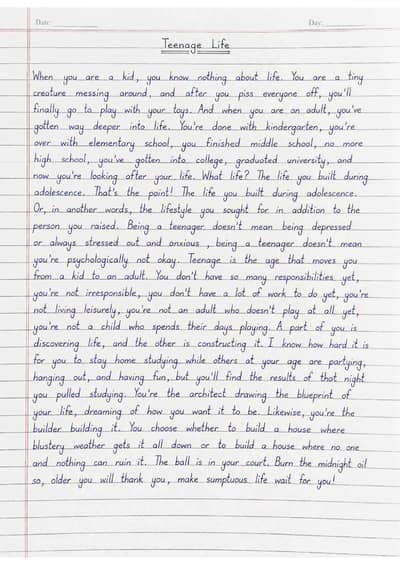 Date: Day:
Teenage Life
When you are a kid, you know nothing about life. You are a tiny
creature messing around, and after you piss everyone off, you'll
finally go to play with your toys. And when you are an adult, you've
gotten way deeper into life. You're done with kindergarten, you're
over with elementary school, you finished middle school, no more
high school, you've gotten into college, graduated university, and
now you're looking after your life. What life? The life you built during
adolescence. That's the point! The life you built during adolescence.
Or, in another words, the lifestyle you sought for in addition to the
person you raised. Being a teenager doesn't mean being depressed
or always stressed out and anxious , being a teenager doesn't mean
you're psychologically not okay. Teenage is the age that moves you
from a kid to an adult. You don't have so many responsibilities yet,
you're not irresponsible, you don't have a lot of work to do yet, you're
not living leisurely, you're not an adult who doesn't play at all yet,
you're not a child who spends their days playing. A part of you is
discovering life, and the other is constructing it. I know how hard it is
for you to stay home studying while others at your age are partying,
hanging out, and having fun, but you'll find the results of that night
you pulled studying. You're the architect drawing the blueprint of
your life, dreaming of how you want it to be. Likewise, you're the
builder building it. You choose whether to build a house where
blustery weather gets it all down or to build a house where no one
and nothing can ruin it. The ball is in your court. Burn the midnight oil
so, older you will thank you, make sumptuous life wait for you!